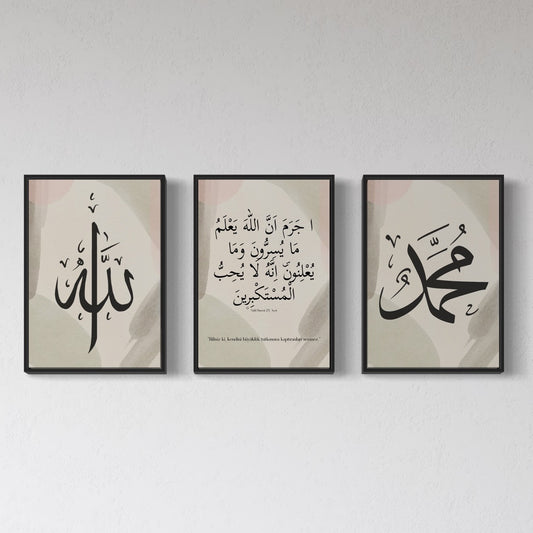 الله
ا جَرَمَ اَنَّ اللّٰهَ يَعْلَمُ
مَا يُسِرُّونَ وَمَا
يُعْلِنُونَۜ اِنَّهُ لَا يُحِبُّ
الْمُسْتَكْبِرٖينَ
Nahl Suresi 23. Ayet
"Bilinir ki, kendini büyüklük tutkusuna kaptıranları sevmez."
محمد